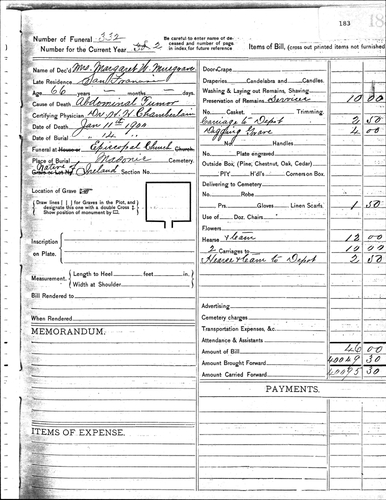 183
Number of Funeral 332
Number for the Current Year 2
Be careful to enter name of deceased and number of page in index for future reference
Items of Bill, (cross out printed items not furnished
Name of Dec'd Mrs. Margaret W. Musgrave
Late Residence San Francisco
Age 66 years — months — days.
Cause of Death Abdominal Tumor
Certifying Physician Dr W. H. Chamberlain
Date of Death Jan 11th 1904
Date of Burial " 14 "
Funeral at House or Episcopal Church Church.
Place of Burial Masonic Cemetery.
Native of Ireland
Grave or Lot No. Section No.
Location of Grave
Draw lines for Graves in the Plot, and designate this one with a double Cross
Show position of monument by
Inscription
on Plate.
Measurement. Length to Heel feet in.
Width at Shoulder
Bill Rendered to
When Rendered
MEMORANDUM.
ITEMS OF EXPENSE.
Door-Crape
Draperies Candelabra and Candles.
Washing & Laying out Remains, Shaving.
Preservation of Remains Services 10 00
No. Casket. Trimming.
Carriage to Depot 2 50
Digging Grave 4 00
No. Handles.
Plate engraved
Outside Box, (Pine, Chestnut, Oak, Cedar)
PIY H'dl's Cemeteron Box.
Delivering to Cemetery
No. Robe
Prs. Gloves Linen Scarfs. 1 50
Use of Doz. Chairs
Flowers
Hearse & team 12 00
2 Carriages to 10 00
Hearse & team to Depot 2 50
Advertising
Cemetery charges
Transportation Expenses, &c.
Attendance & Assistants
Amount of Bill 46 00
Amount Brought Forward 40049 30
Amount Carried Forward 40095 30
PAYMENTS.